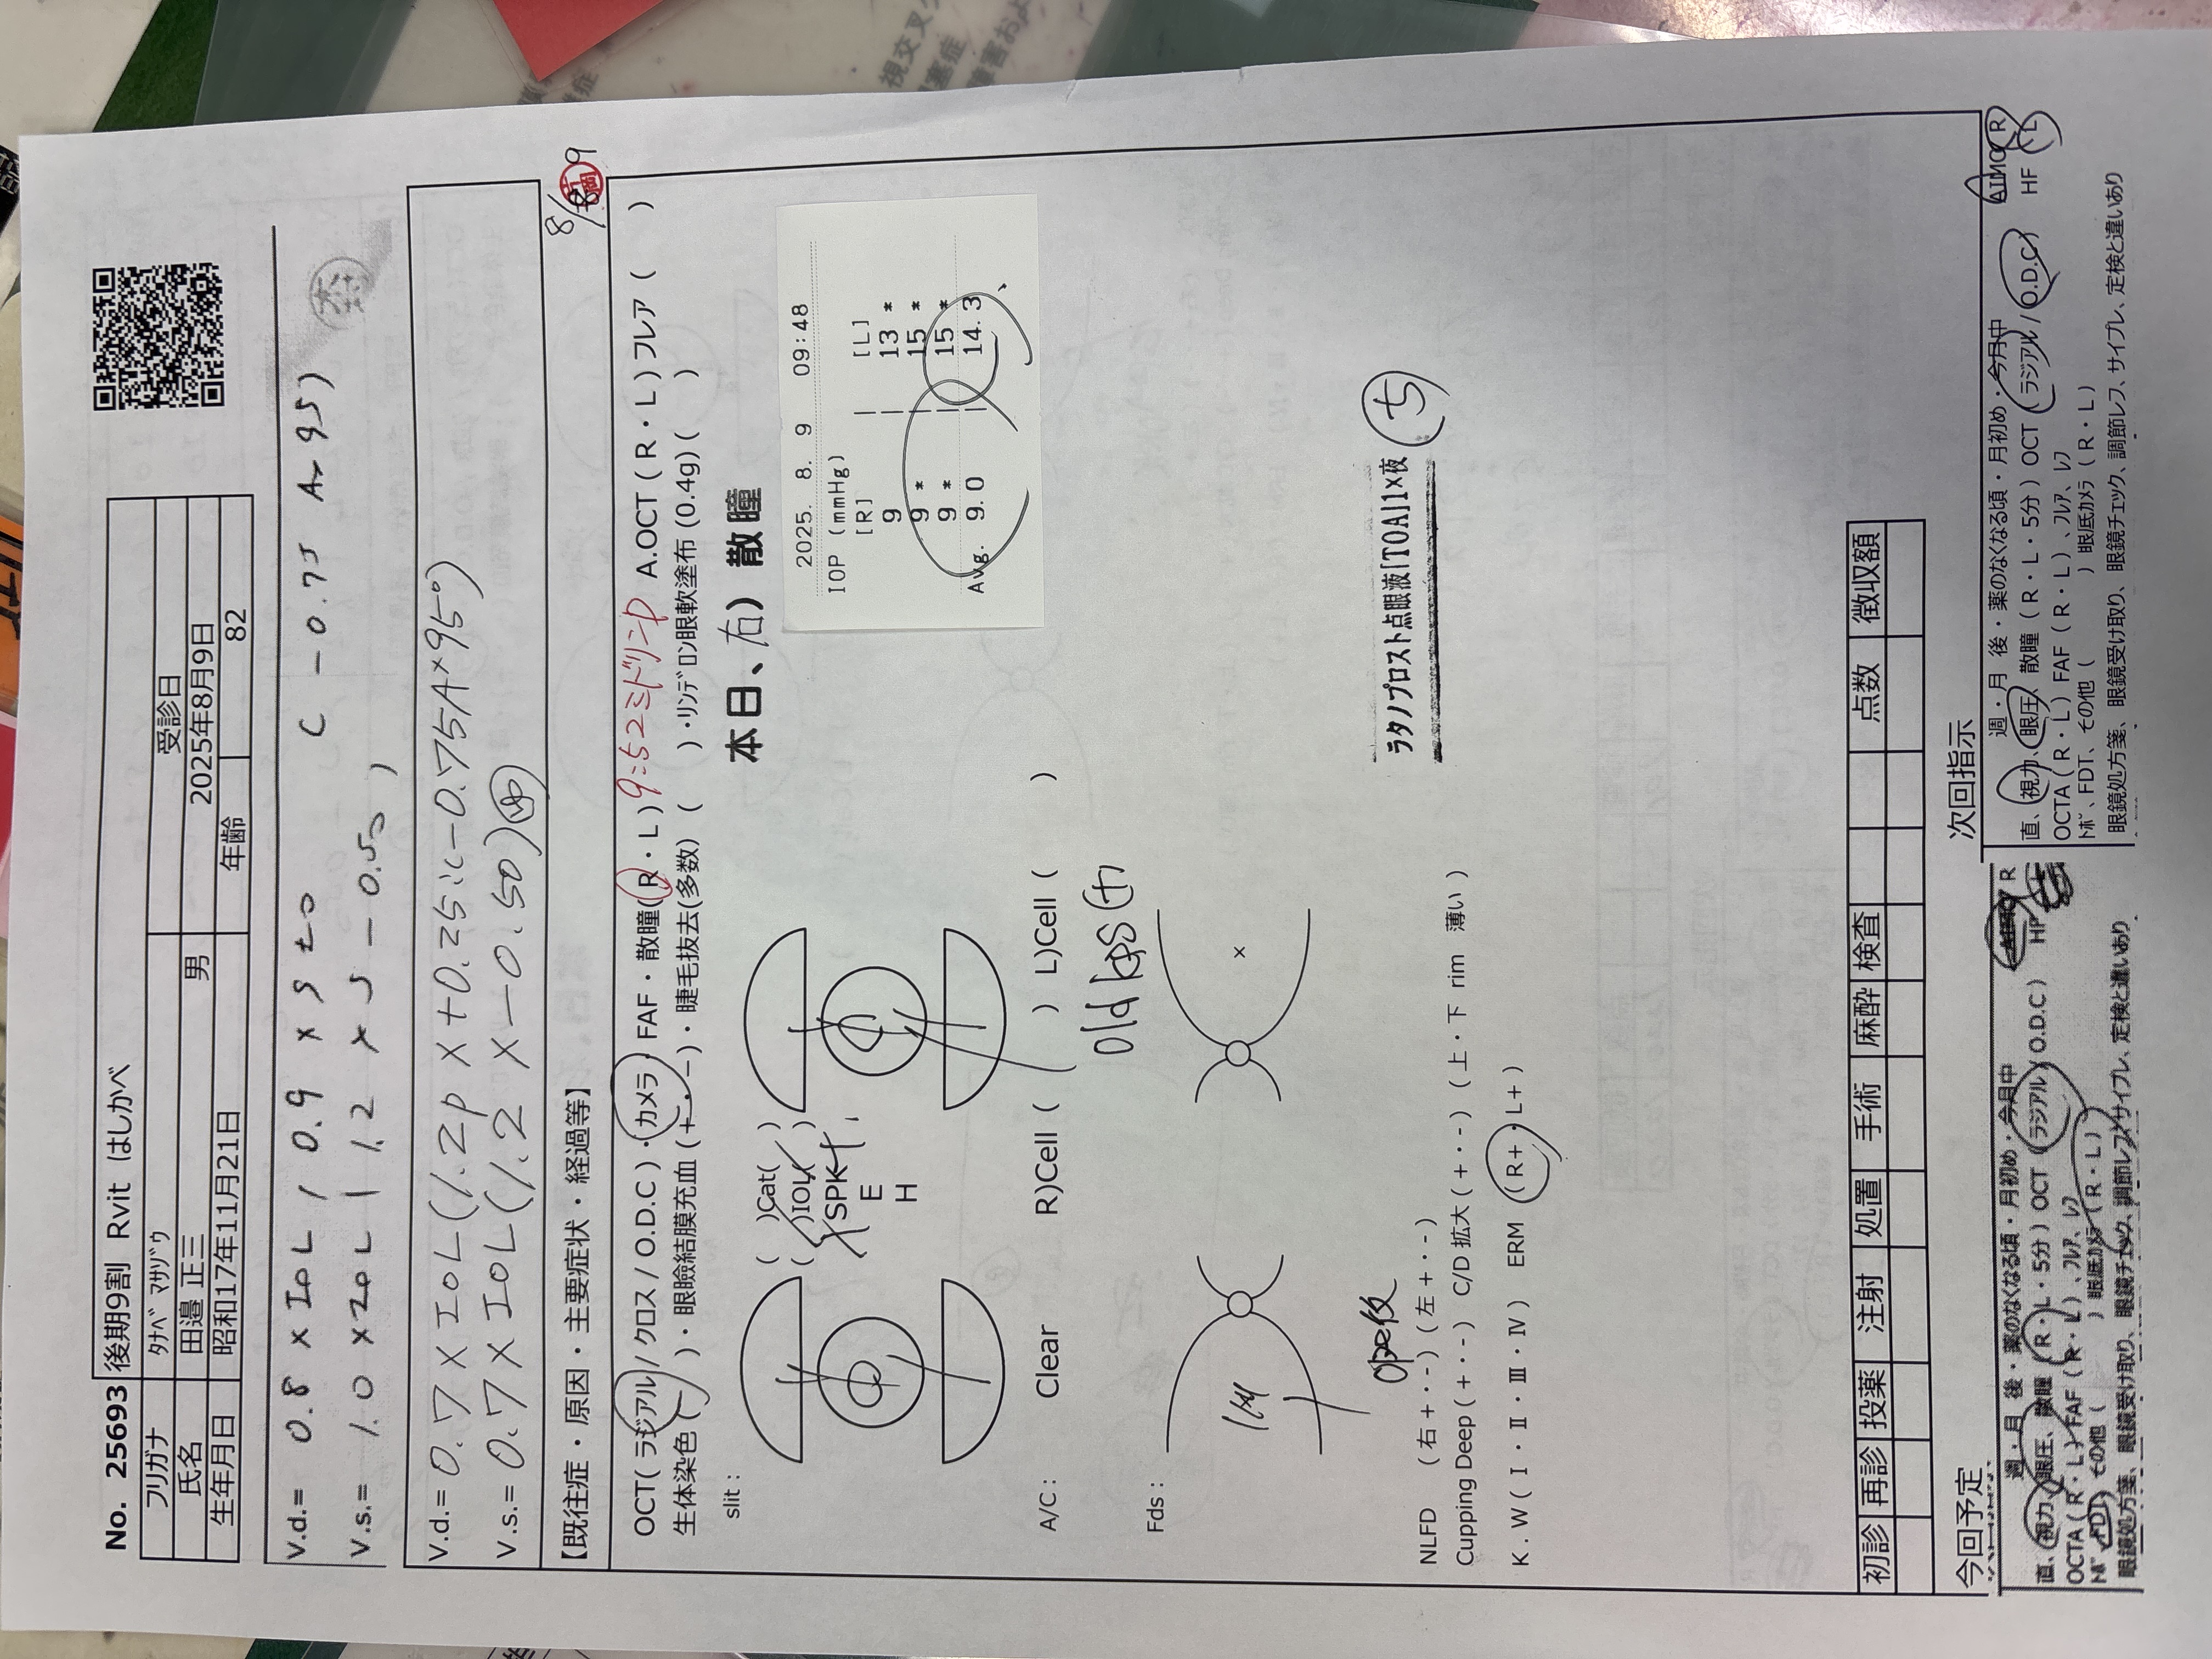 No. 25693 後期9割 Rvit はしかべ
フリガナ ﾀﾅﾍﾞ ﾏｻｿﾞｳ 受診日
氏名 田邉 正三 男 2025年8月9日
生年月日 昭和17年11月21日 年齢 82
V.d.= 0.8 × IOL , 0.9 × S±0 C -0.75 Ax 95)
V.s.= 1.0 × IOL ( 1.2 × S -0.50 )
木村
V.d.= 0.7 × IOL (1.2p × +0.25:c-0.75A×95°)
V.s.= 0.7 × IOL (1.2 × -0.50)
【既往症・原因・主要症状・経過等】
8/ 9
OCT( ラジアル / クロス / O.D.C )・カメラ・FAF・散瞳( R・L ) 9:52 ミドリンP A.OCT ( R・L ) フレア ( )
生体染色 ( - )・眼瞼結膜充血 (+・-)・睫毛抜去(多数) ( )・ﾘﾝﾃﾞﾛﾝ眼軟塗布 (0.4g) ( )
slit :
( )Cat( )
( )IOL( )
SPK
E
H
本日、右) 散瞳
2025. 8. 9 09:48
IOP (mmHg)
[R] | [L]
9 | 13 *
9 * | 15 *
9 * | 15 *
Avg. 9.0 | 14.3
A/C : Clear R)Cell ( ) L)Cell ( )
Old kps (+)
Fds :
×
ope後
ラタノプロスト点眼液「TOA」1×夜 5
NLFD ( 右 +・- ) ( 左 +・- )
Cupping Deep ( +・- ) C/D 拡大 ( +・- ) ( 上・下 rim 薄い )
K . W ( Ⅰ・Ⅱ・Ⅲ・Ⅳ ) ERM ( R+・L+ )
初診 再診 投薬 注射 処置 手術 麻酔 検査 点数 徴収額
今回予定
週・月 後・薬のなくなる頃・月初め・今月中 AIMO R
直、視力、眼圧、散瞳 ( R・L・5分 ) OCT ( ラジアル / O.D.C ) HF L
OCTA ( R・L ) FAF ( R・L ) 、ﾌﾚｱ、ﾚﾌ
ﾄﾎﾟ、FDT、その他 ( ) 眼底ｶﾒﾗ ( R・L )
眼鏡処方箋、眼鏡受け取り、眼鏡チェック、調節レフ、サイプレ、定検と違いあり
次回指示
週・月 後・薬のなくなる頃・月初め・今月中 AIMO R
直、視力、眼圧、散瞳 ( R・L・5分 ) OCT ( ラジアル / O.D.C ) HF L
OCTA ( R・L ) FAF ( R・L ) 、ﾌﾚｱ、ﾚﾌ
ﾄﾎﾟ、FDT、その他 ( ) 眼底カメラ ( R・L )
眼鏡処方箋、眼鏡受け取り、眼鏡チェック、調節レフ、サイプレ、定検と違いあり